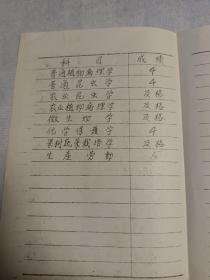 科目 成绩
普通植物病理学 4
普通昆虫学 4
农业昆虫学 及格
农业植物病理学 及格
微生物学 及格
化学保护学 4
果树蔬菜栽培学 及格
生产劳动 5